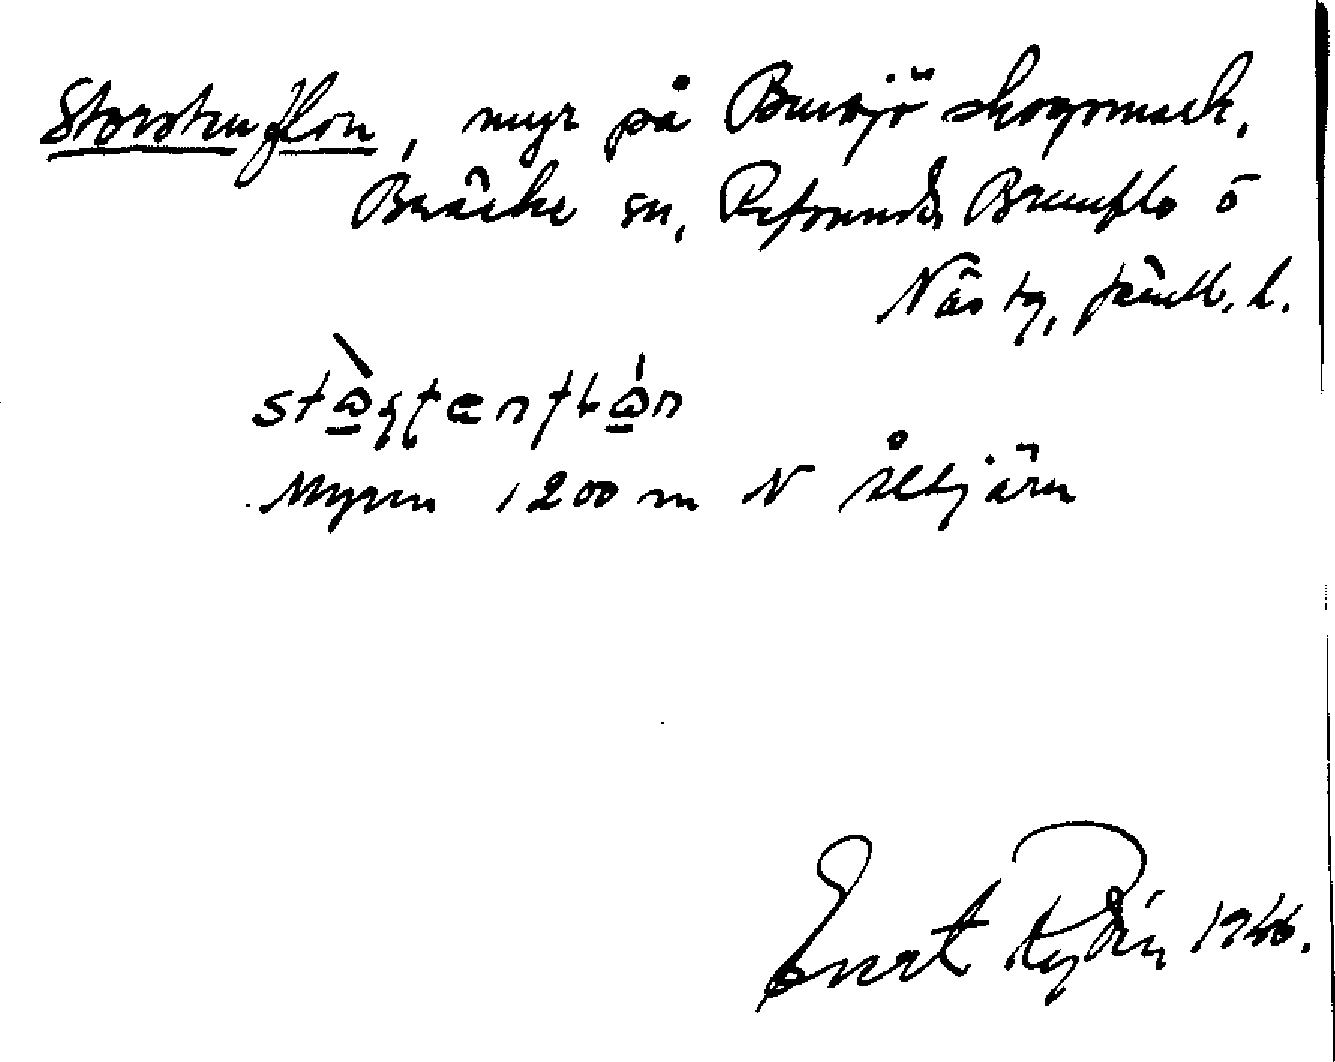 Storstenflon, myr på Bensjö skogsmark,
Bräcke sn, Refsunds, Brunflo o
Näs tg, Jämtl. l.
Myren 1200 m N Åltjärn
Evert Rydén 1946.